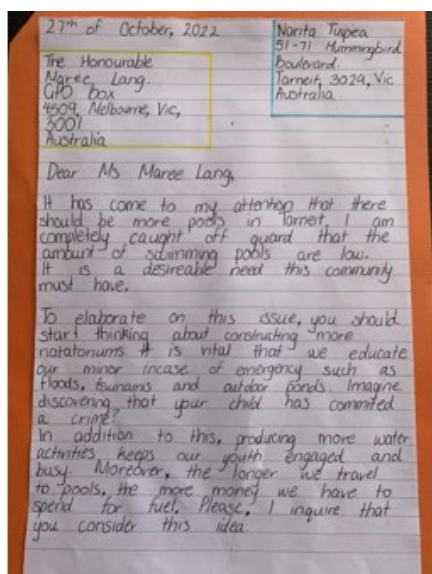 27th of October, 2022
Norita Tuipea
51-71 Hummingbird
Boulevard.
Tarneit, 3029, Vic
Australia.
The Honourable
Maree Lang.
GPO box
4509, Melbourne, Vic,
3001
Australia
Dear Ms Maree Lang,
It has come to my attention that there
should be more pools in Tarneit, I am
completely caught off guard that the
amount of swimming pools are low.
It is a desireable need this community
must have.
To elaborate on this issue, you should
start thinking about constructing more
natatoriums. It is vital that we educate
our minor incase of emergency such as
floods, tsunamis and outdoor ponds. Imagine
discovering that your child has commited
a crime?
In addition to this, producing more water
activities keeps our youth engaged and
busy. Moreover, the longer we travel
to pools, the more money we have to
spend for fuel. Please, I inquire that
you consider this idea.